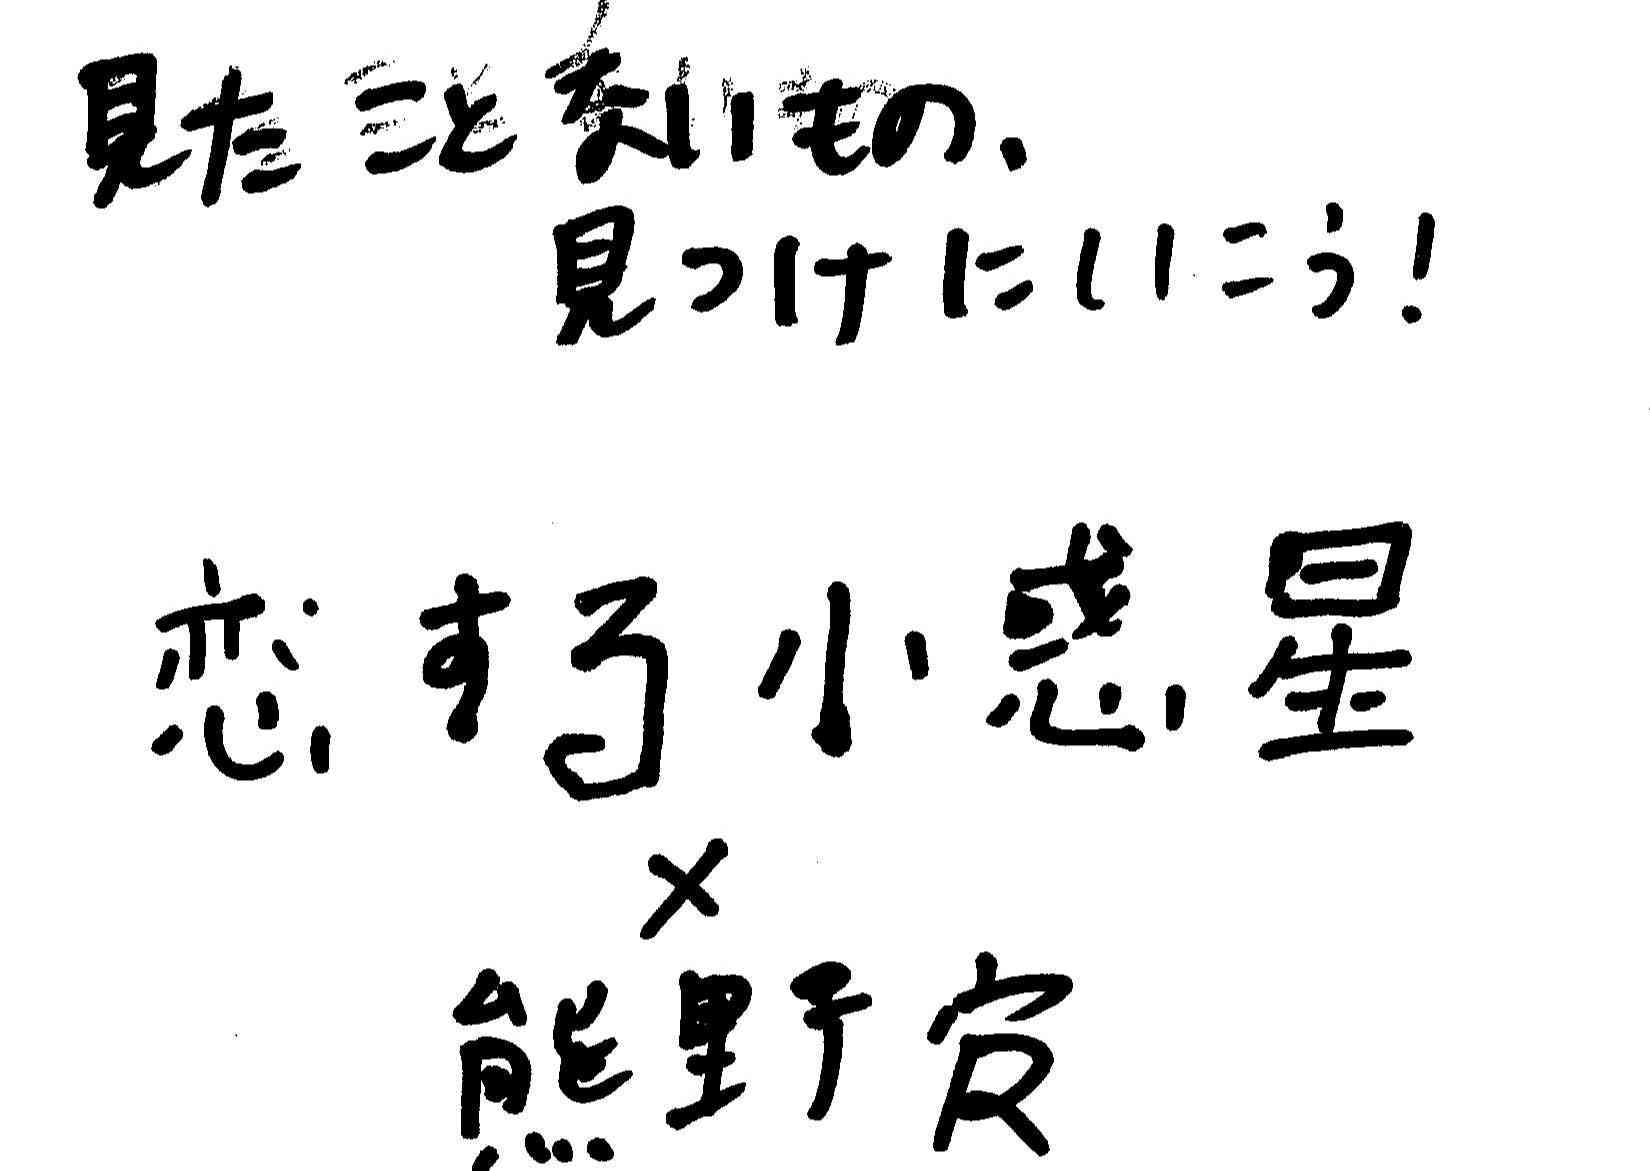 見たことないもの、
見つけにいこう!
恋する小惑星
×
熊野寮